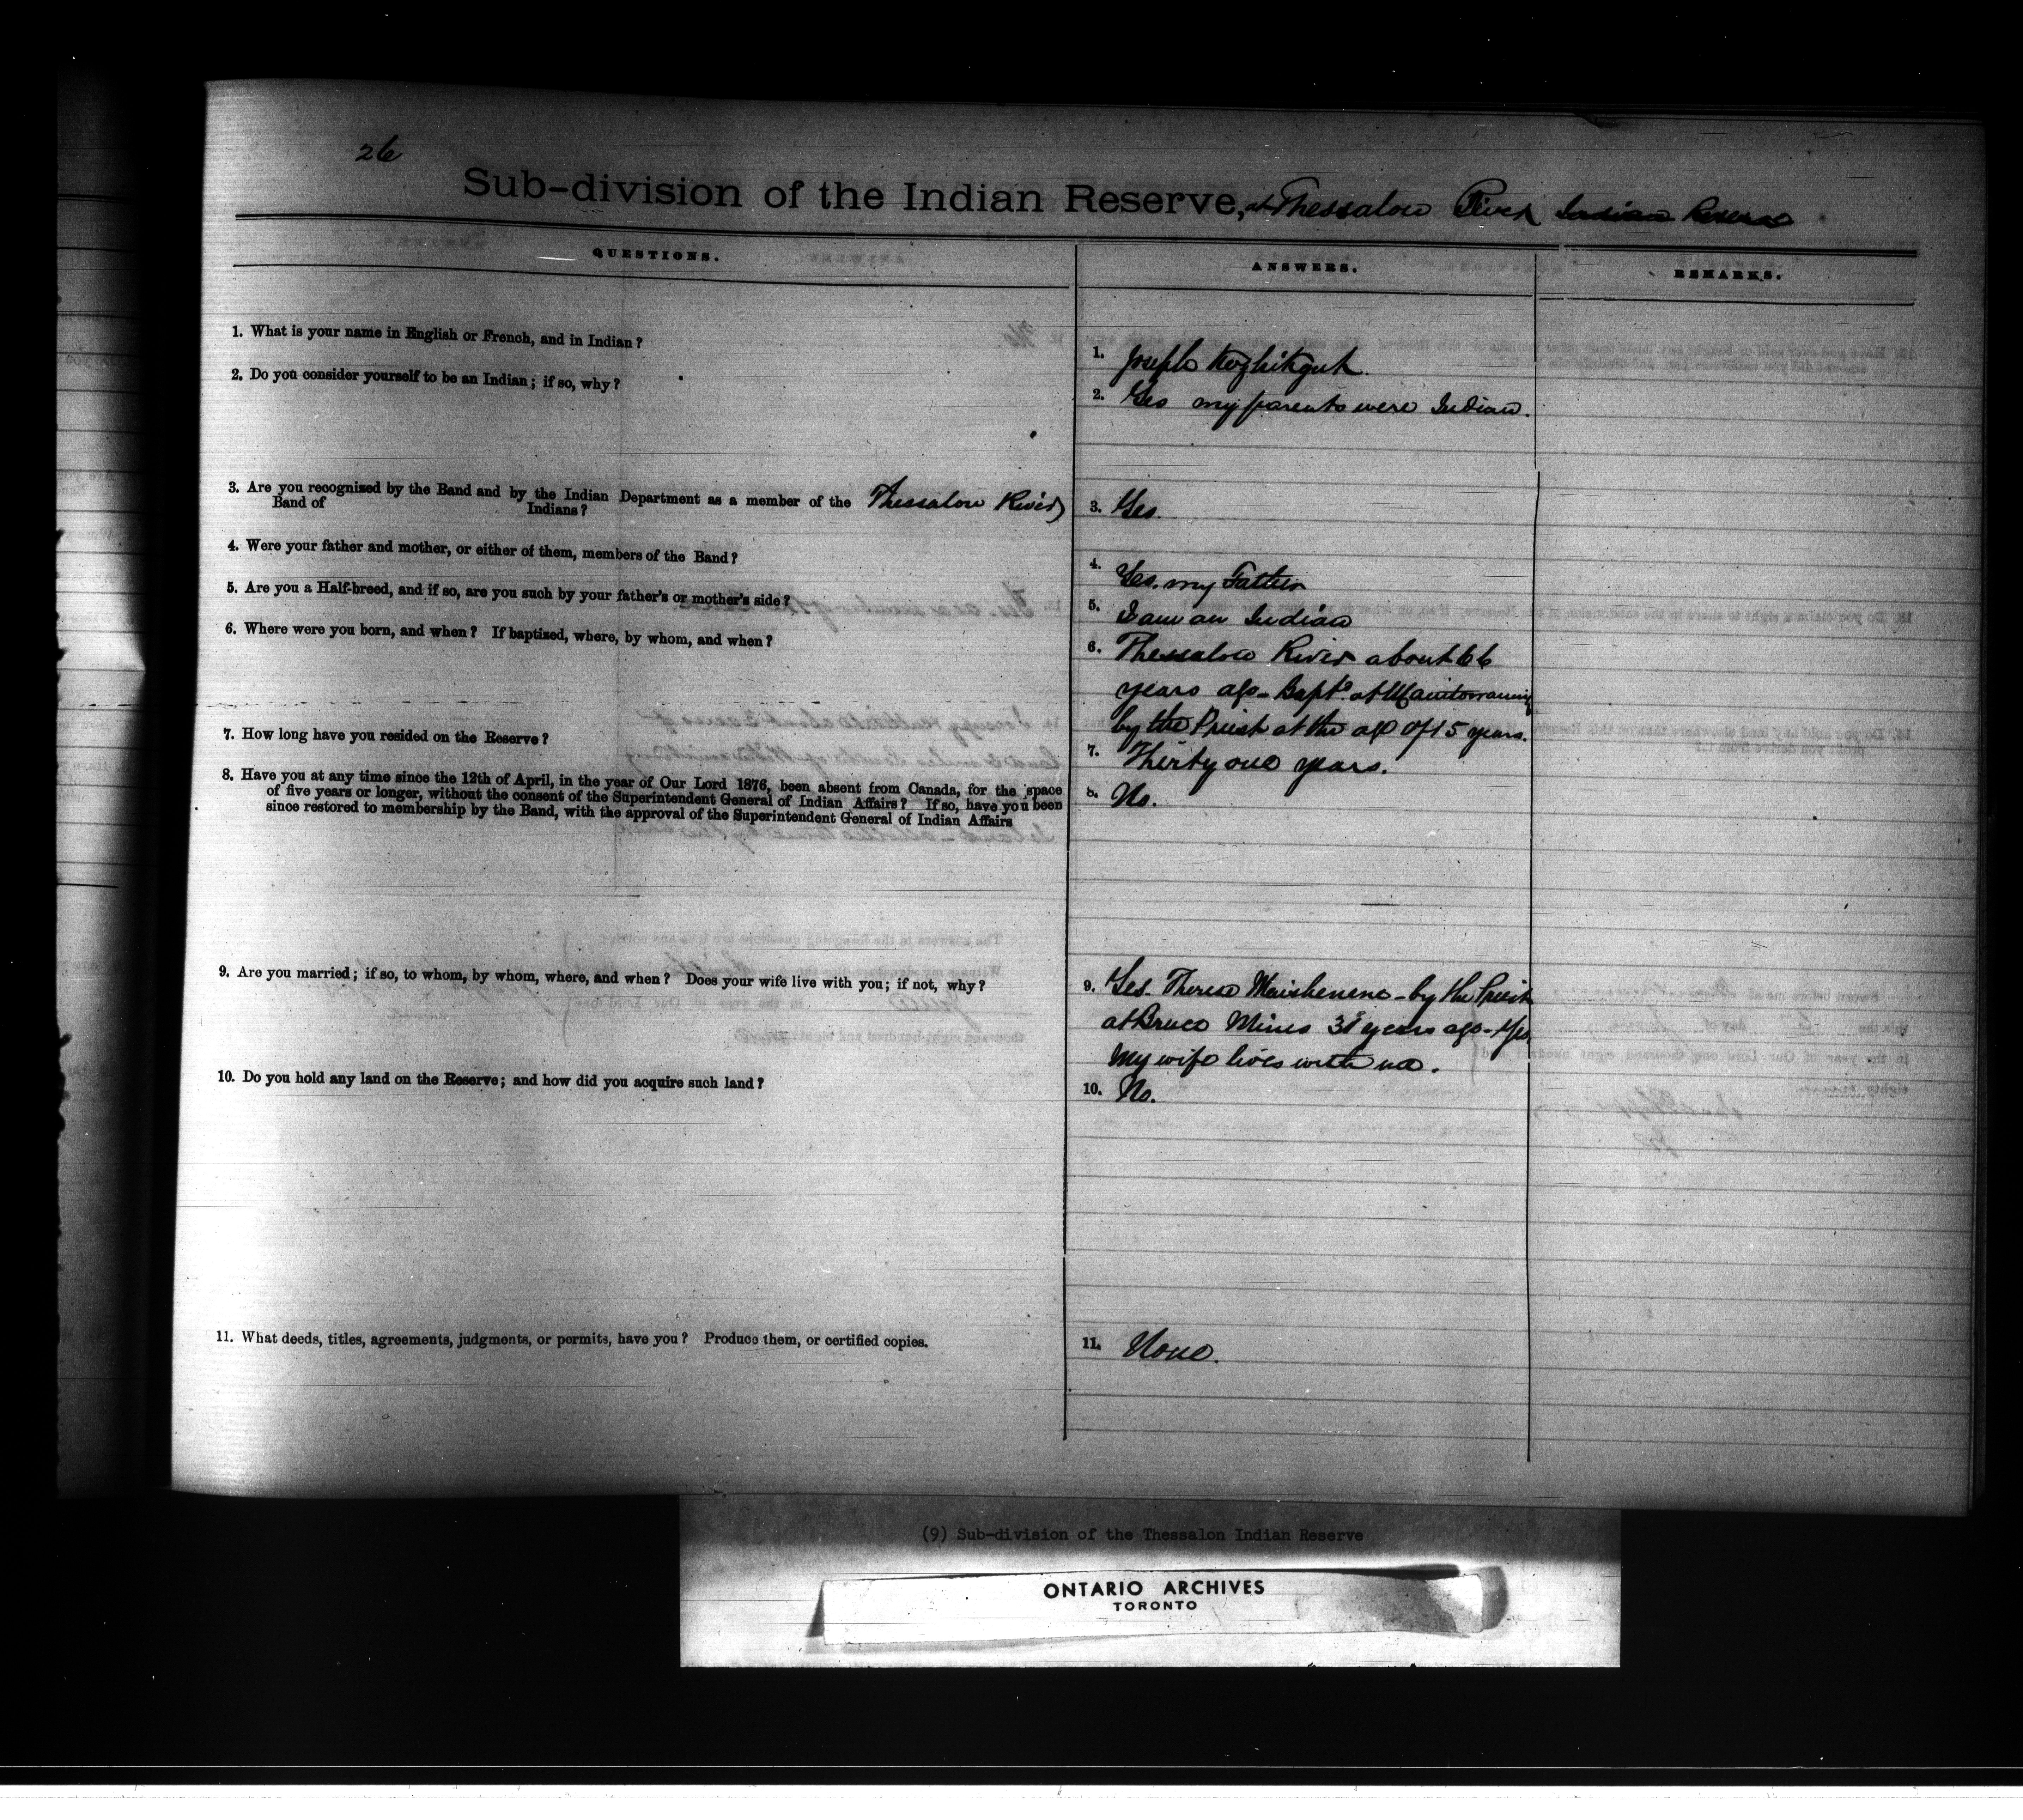 26
Sub-division of the Indian Reserve, at Thessalon River Indian Reserve
QUESTIONS.
ANSWERS.
REMARKS.
1. What is your name in English or French, and in Indian?
1. Joseph
2. Do you consider yourself to be an Indian; if so, why?
2. Yes my parents were Indian.
3. Are you recognized by the Band and by the Indian Department as a member of the Thessalon River
Band of Indians?
3. Yes.
4. Were your father and mother, or either of them, members of the Band?
4. Yes. my Father
5. Are you a Half-breed, and if so, are you such by your father's or mother's side?
5. I am an Indian
6. Where were you born, and when? If baptized, where, by whom, and when?
6. Thessalon River about 66
years ago - Bapt. at Manitowaning
by the Priest at the age of 15 years.
7. How long have you resided on the Reserve?
7. Thirty one years.
8. Have you at any time since the 12th of April, in the year of Our Lord 1876, been absent from Canada, for the space
of five years or longer, without the consent of the Superintendent General of Indian Affairs? If so, have you been
since restored to membership by the Band, with the approval of the Superintendent General of Indian Affairs
8. No.
9. Are you married; if so, to whom, by whom, where, and when? Does your wife live with you; if not, why?
9. Yes. Therese - by the Priest
at Bruce Mines years ago - Yes
My wife lives with me.
10. Do you hold any land on the Reserve; and how did you acquire such land?
10. No.
11. What deeds, titles, agreements, judgments, or permits, have you? Produce them, or certified copies.
11. None.
(9) Sub-division of the Thessalon Indian Reserve
ONTARIO ARCHIVES
TORONTO